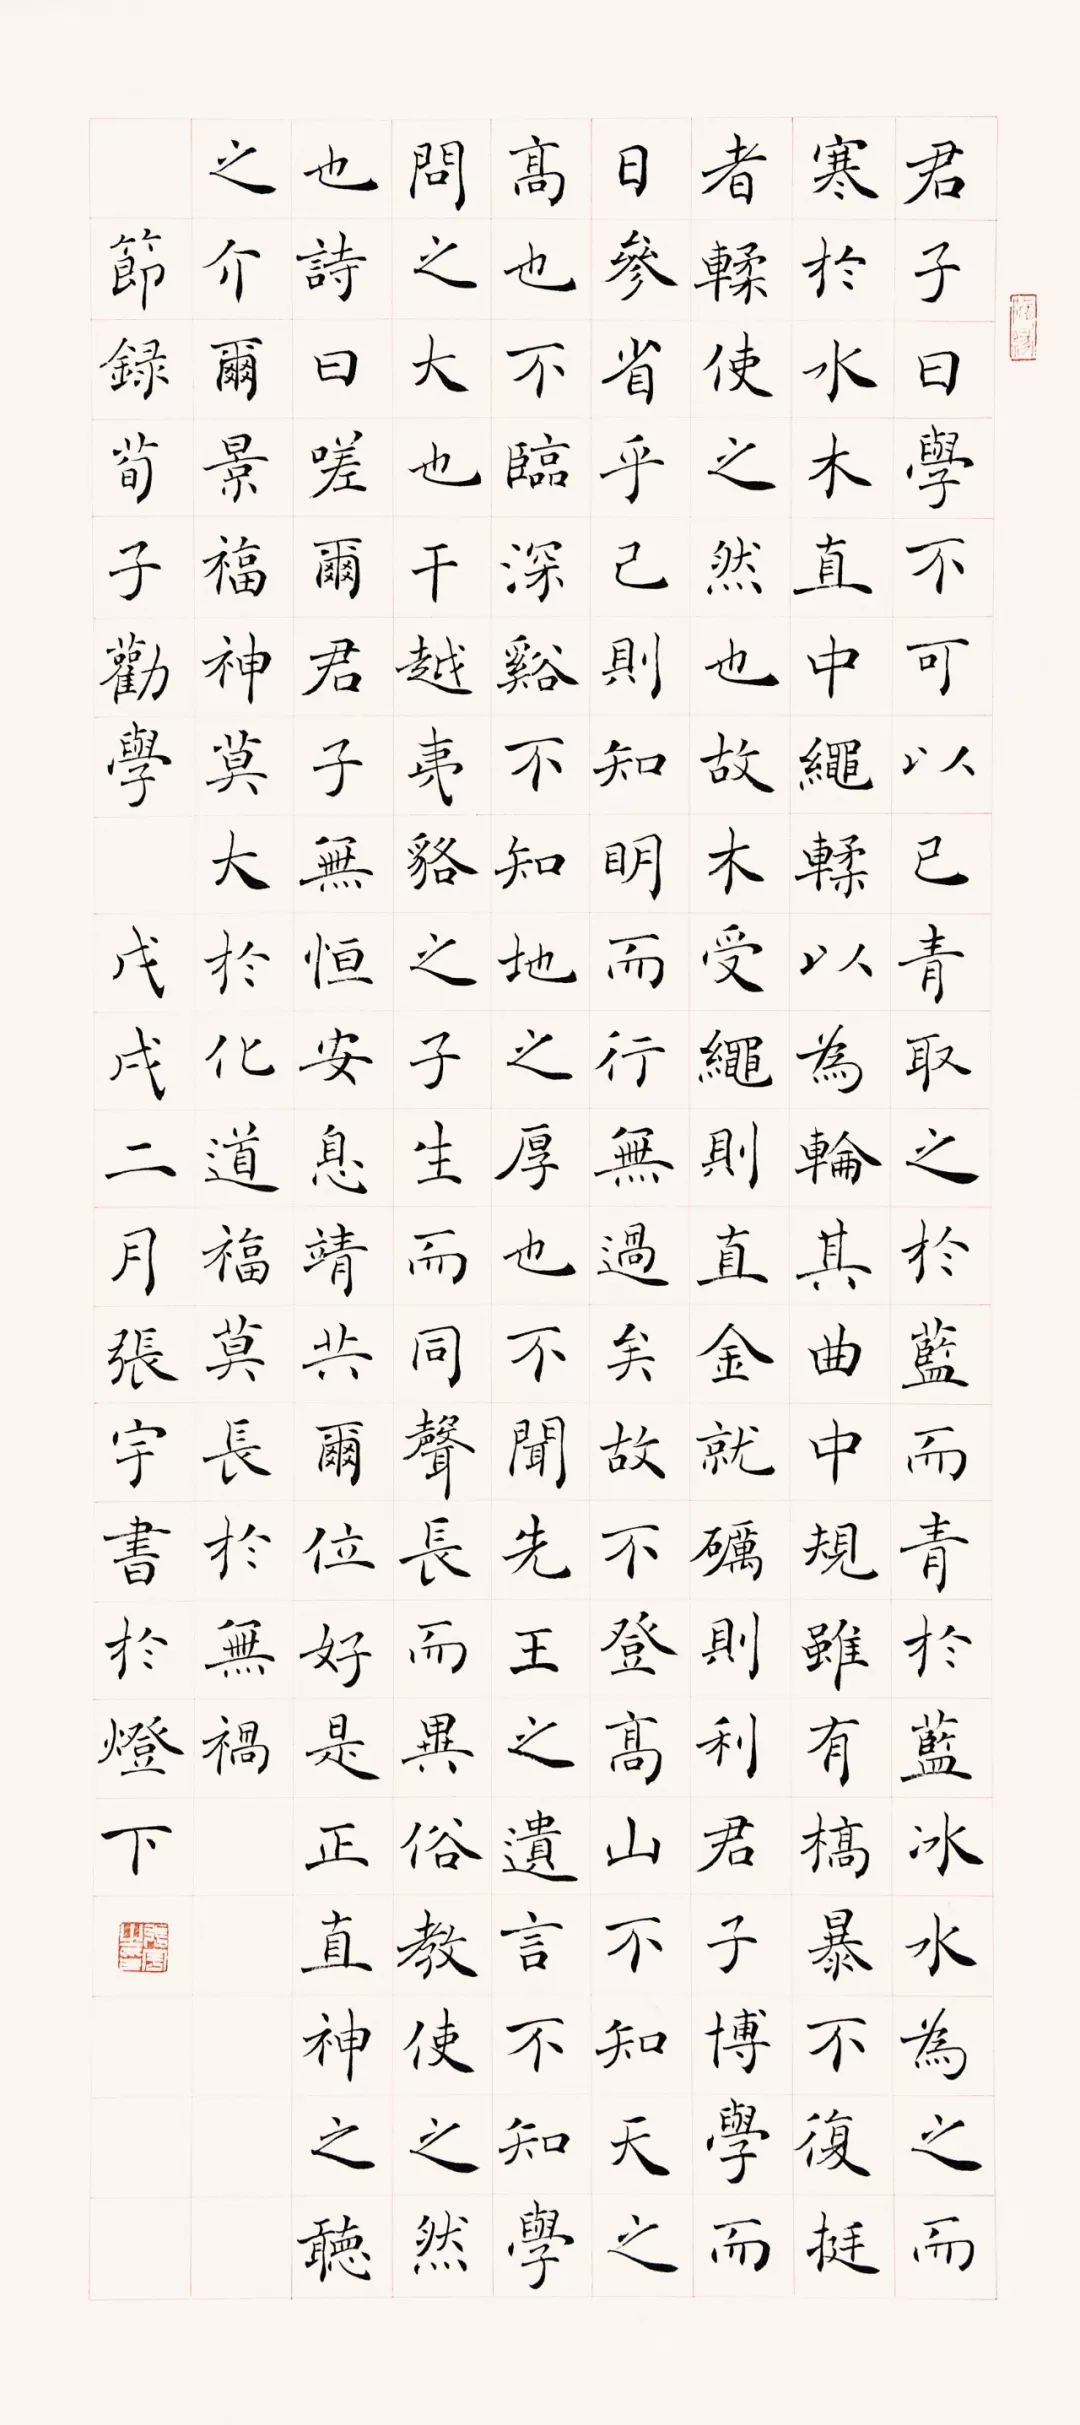 君子曰學不可以已青取之於藍而青於藍冰水為之而
寒於水木直中繩輮以為輪其曲中規雖有槁暴不復挺
者輮使之然也故木受繩則直金就礪則利君子博學而
日參省乎己則知明而行無過矣故不登高山不知天之
高也不臨深谿不知地之厚也不聞先王之遺言不知學
問之大也干越夷貉之子生而同聲長而異俗教使之然
也詩曰嗟爾君子無恒安息靖共爾位好是正直神之聽
之介爾景福神莫大於化道福莫長於無禍
節録荀子勸學 戊戌二月張宇書於燈下